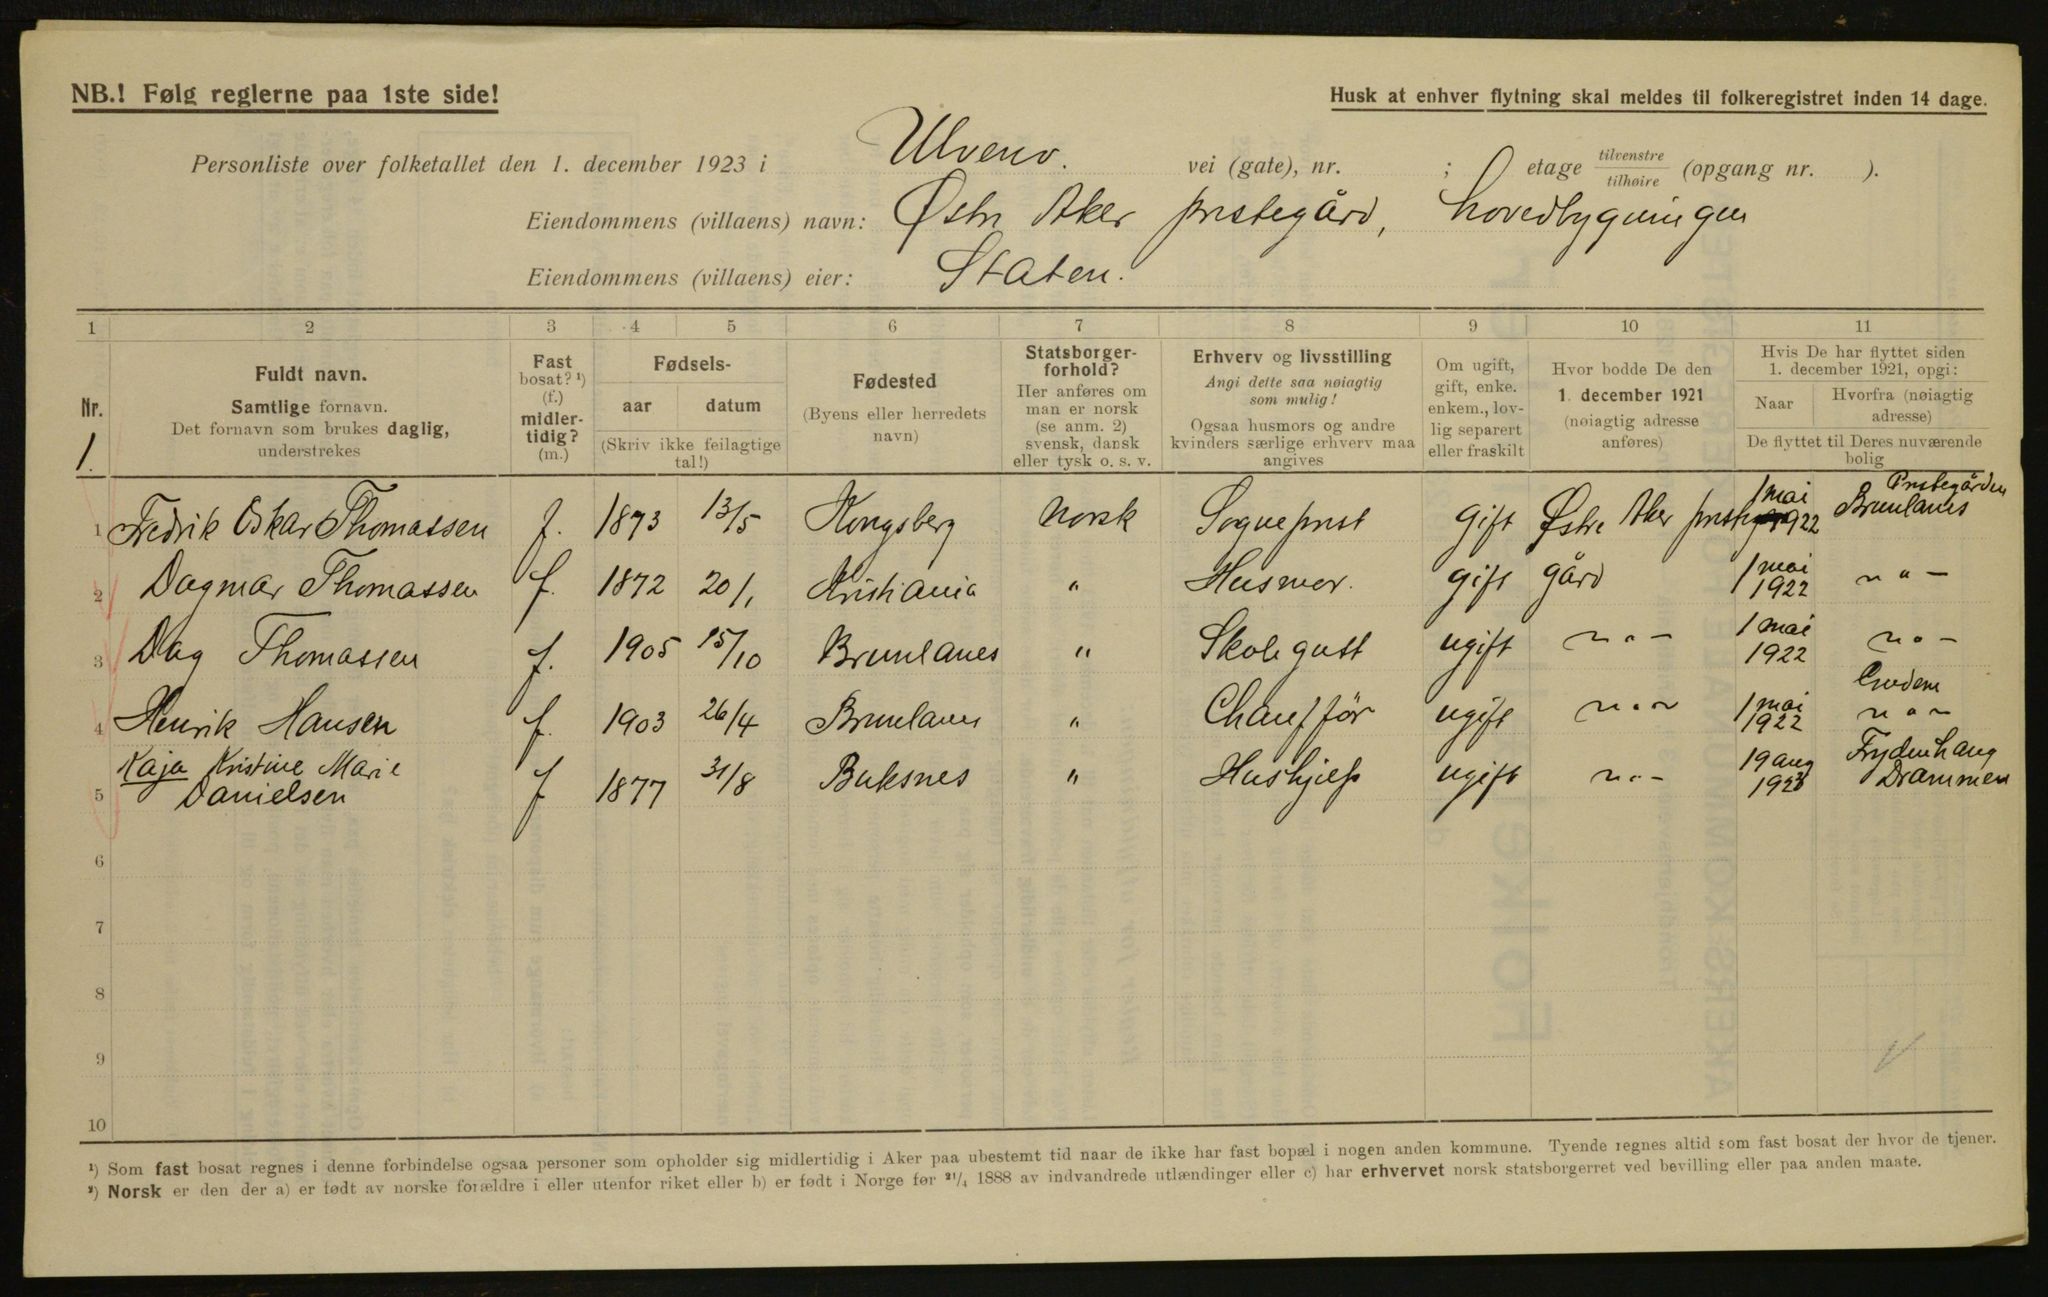 NB.! Følg reglerne paa 1ste side!
Husk at enhver flytning skal meldes til folkeregistret inden 14 dage.
Personliste over folketallet den 1. december 1923 i Ulvenv. vei (gate), nr. ; etage tilvenstre tilhøire (opgang nr. ).
Eiendommens (villaens) navn: Østre Aker prestegård, hovedbygningen
Eiendommens (villaens) eier: Staten.
1 2 3 4 5 6 7 8 9 10 11
Nr.
1.
Fuldt navn.
Samtlige fornavn.
Det fornavn som brukes daglig,
understrekes
Fast
bosat? ¹)
(f.)
midler-
tidig?
(m.)
Fødsels-
aar datum
(Skriv ikke feilagtige
tal!)
Fødested
(Byens eller herredets
navn)
Statsborger-
forhold?
Her anføres om
man er norsk
(se anm. 2)
svensk, dansk
eller tysk o. s. v.
Erhverv og livsstilling
Angi dette saa nøiagtig
som mulig!
Ogsaa husmors og andre
kvinders særlige erhverv maa
angives
Om ugift,
gift, enke.
enkem., lov-
lig separert
eller fraskilt
Hvor bodde De den
1. december 1921
(nøiagtig adresse
anføres)
Hvis De har flyttet siden
1. december 1921, opgi:
Naar
Hvorfra (nøiagtig
adresse)
De flyttet til Deres nuværende
bolig
1 Fredrik Oskar Thomassen f. 1873 13/5 Kongsberg norsk Sogneprest gift Østre Aker preste 1 mai 1922 Prestegården Brunlanes
2 Dagmar Thomassen f. 1872 20/1 Kristiania " Husmor. gift gård 1 mai 1922 " " -
3 Dag Thomassen f. 1905 15/10 Brunlanes " Skolegutt ugift " " - 1 mai 1922 " " -
4 Henrik Hansen f. 1903 26/4 Brunlanes " Chaufför ugift " " " 1 mai 1922 " " "
5 Kaja Kristine Marie Danielsen f 1877 31/8 Buksnes " Hushjelp ugift " " - 19 aug 1923 Frydenhaug Drammen
6
7
8
9
10
¹) Som fast bosat regnes i denne forbindelse ogsaa personer som opholder sig midlertidig i Aker paa ubestemt tid naar de ikke har fast bopæl i nogen anden kommune. Tyende regnes altid som fast bosat der hvor de tjener.
²) Norsk er den der a) er født av norske forældre i eller utenfor riket eller b) er født i Norge før ²¹/₄ 1888 av indvandrede utlændinger eller c) har erhvervet norsk statsborgerret ved bevilling eller paa anden maate.